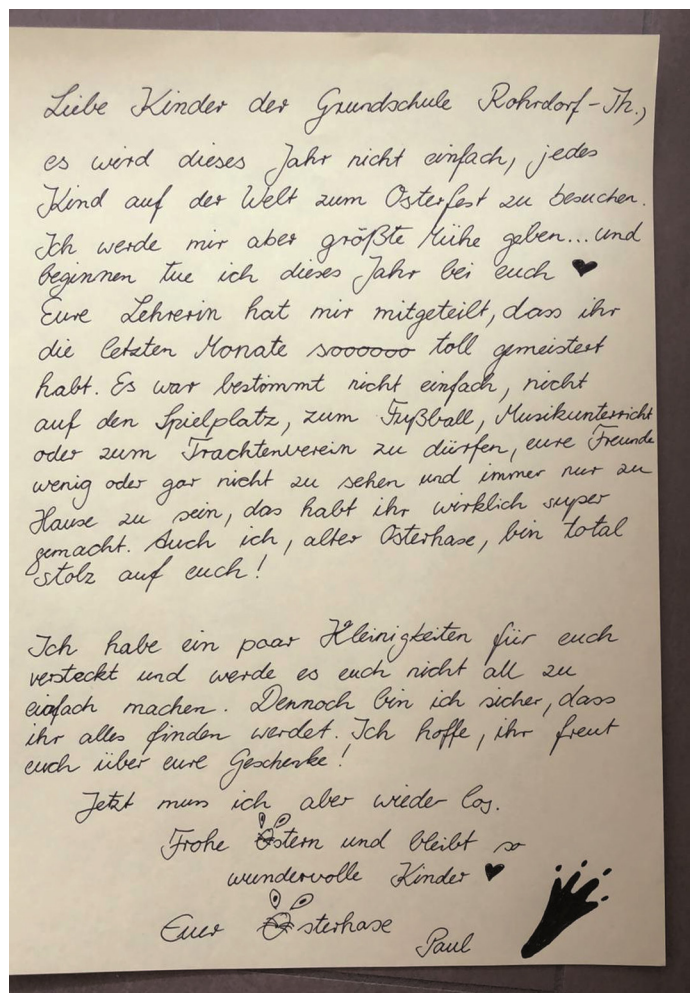 Liebe Kinder der Grundschule Rohrdorf-Th.,
es wird dieses Jahr nicht einfach, jedes
Kind auf der Welt zum Osterfest zu besuchen.
Ich werde mir aber größte Mühe geben... und
beginnen tue ich dieses Jahr bei euch ♥
Eure Lehrerin hat mir mitgeteilt, dass ihr
die letzten Monate soooooo toll gemeistert
habt. Es war bestimmt nicht einfach, nicht
auf den Spielplatz, zum Fußball, Musikunterricht
oder zum Trachtenverein zu dürfen, eure Freunde
wenig oder gar nicht zu sehen und immer nur zu
Hause zu sein, das habt ihr wirklich super
gemacht. Auch ich, alter Osterhase, bin total
stolz auf euch!
Ich habe ein paar Kleinigkeiten für euch
versteckt und werde es euch nicht all zu
einfach machen. Dennoch bin ich sicher, dass
ihr alles finden werdet. Ich hoffe, ihr freut
euch über eure Geschenke!
Jetzt muss ich aber wieder los.
Frohe Ostern und bleibt so
wundervolle Kinder ♥
Euer Osterhase
Paul